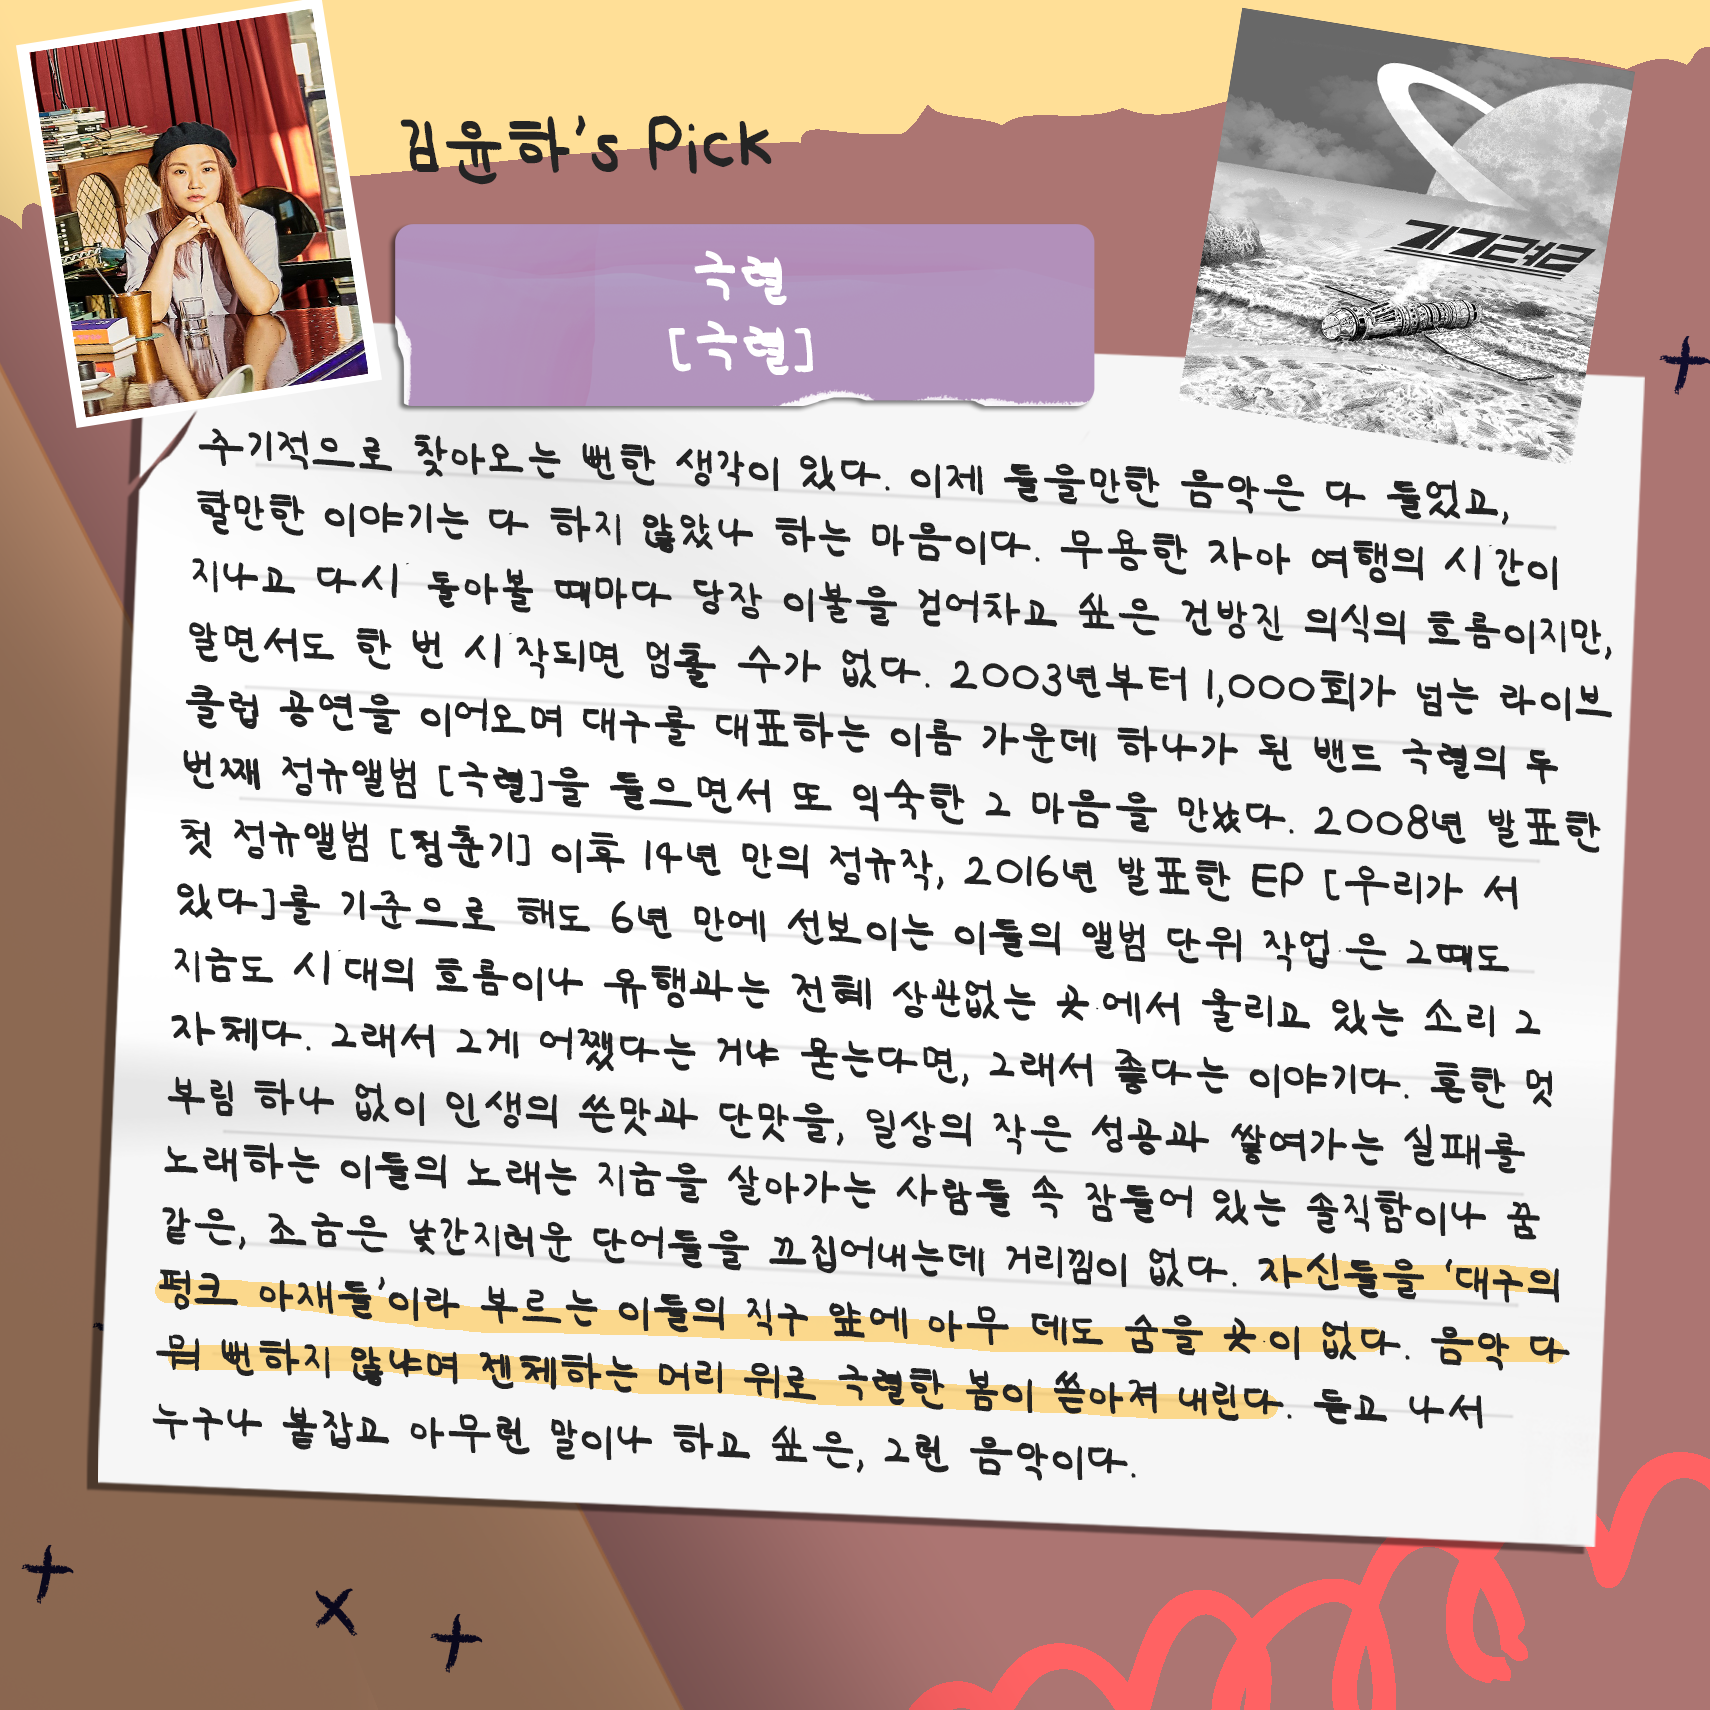 김윤하's Pick
극렬
[극렬]
주기적으로 찾아오는 뻔한 생각이 있다. 이제 들을만한 음악은 다 들었고,
할만한 이야기는 다 하지 않았나 하는 마음이다. 무용한 자아 여행의 시간이
지나고 다시 돌아볼 때마다 당장 이불을 걷어차고 싶은 건방진 의식의 흐름이지만,
알면서도 한 번 시작되면 멈출 수가 없다. 2003년부터 1,000회가 넘는 라이브
클럽 공연을 이어오며 대구를 대표하는 이름 가운데 하나가 된 밴드 극렬의 두
번째 정규앨범 [극렬]을 들으면서 또 익숙한 그 마음을 만났다. 2008년 발표한
첫 정규앨범 [청춘기] 이후 14년 만의 정규작, 2016년 발표한 EP [우리가 서
있다]를 기준으로 해도 6년 만에 선보이는 이들의 앨범 단위 작업은 그때도
지금도 시대의 흐름이나 유행과는 전혀 상관없는 곳에서 울리고 있는 소리 그
자체다. 그래서 그게 어쨌다는 거냐 묻는다면, 그래서 좋다는 이야기다. 흔한 멋
부림 하나 없이 인생의 쓴맛과 단맛을, 일상의 작은 성공과 쌓여가는 실패를
노래하는 이들의 노래는 지금을 살아가는 사람들 속 잠들어 있는 솔직함이나 꿈
같은, 조금은 낯간지러운 단어들을 끄집어내는데 거리낌이 없다. 자신들을 ‘대구의
펑크 아재들’이라 부르는 이들의 직구 앞에 아무 데도 숨을 곳이 없다. 음악 다
뭐 뻔하지 않냐며 젠체하는 머리 위로 극렬한 봄이 쏟아져 내린다. 듣고 나서
누구나 붙잡고 아무런 말이나 하고 싶은, 그런 음악이다.